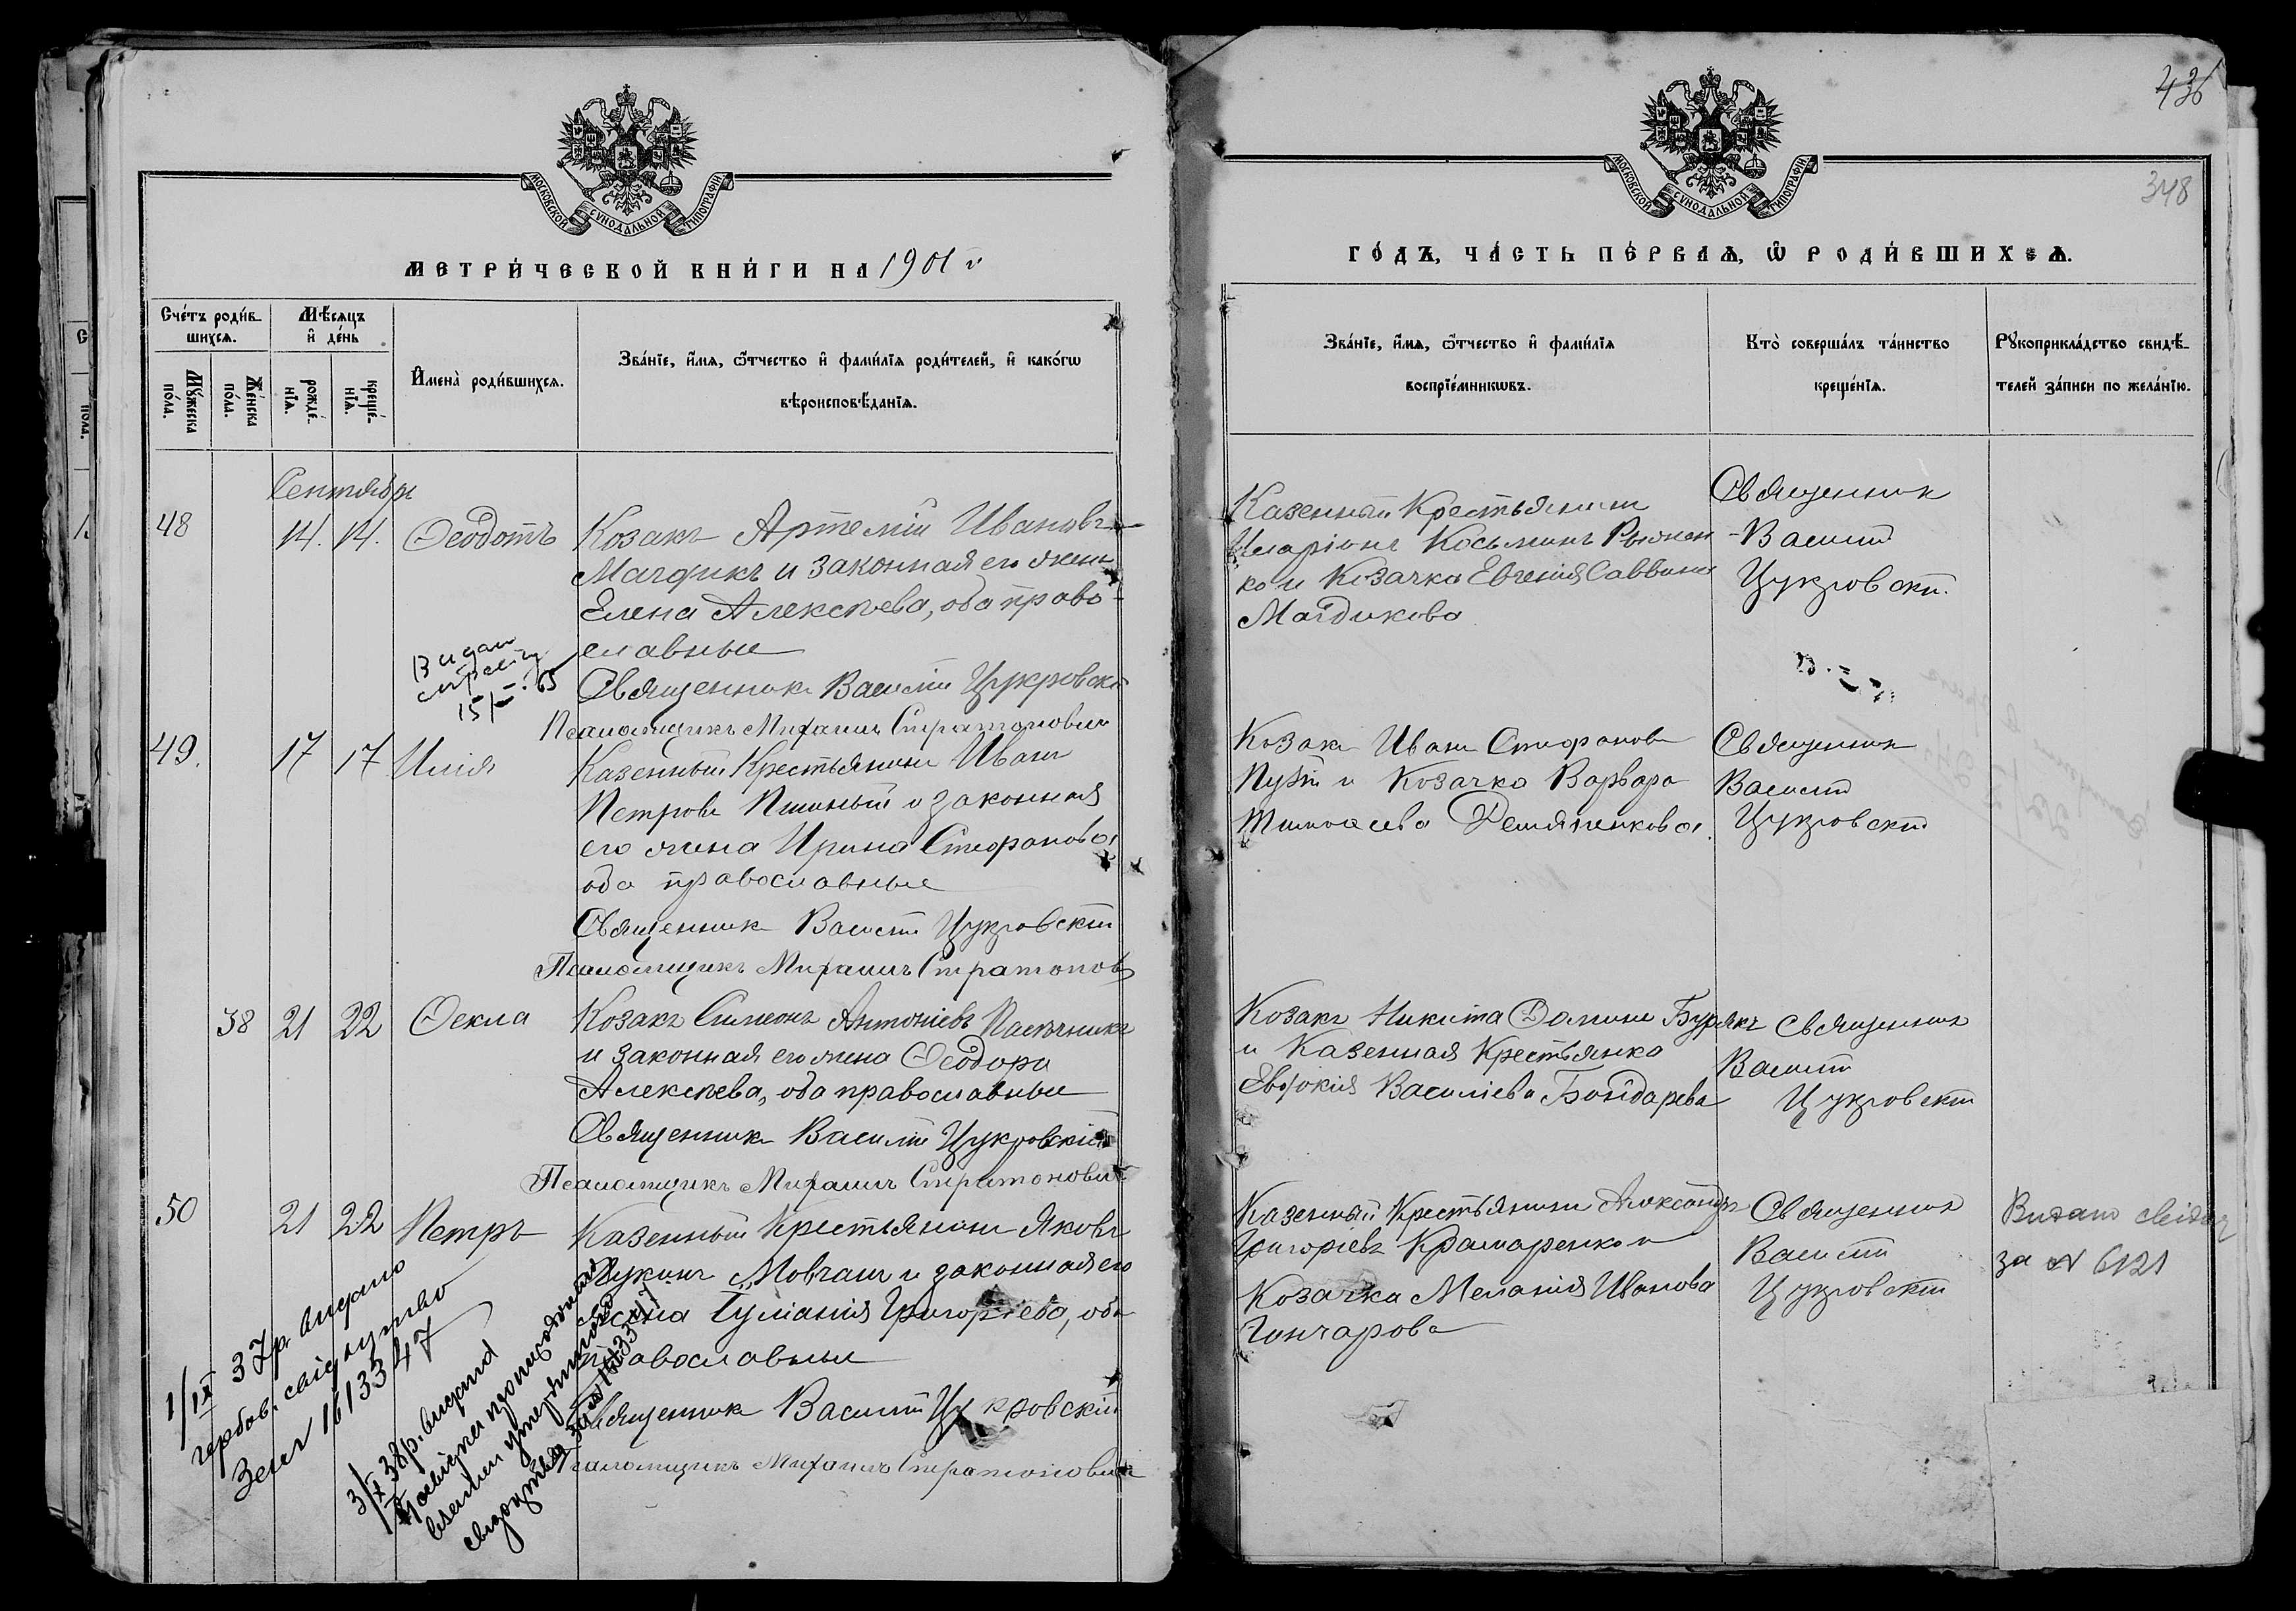 МОСКОВСКОЙ СѴНОДАЛЬНОЙ ТИПОГРАФІИ
МЕТРИ́ЧЕСКОЙ КНИ́ГИ НА 1901 г
Сче́тъ роди́в-
шихсѧ.
Мѣ́сѧцъ
и҆ де́нь
Мꙋ́жеска
по́ла.
Же́нска
по́ла.
рожде́-
нїѧ.
креще́-
нїѧ.
И҆мена̀ роди́вшихсѧ.
Зва́нїе, и҆́мѧ, ѻ҆́тчество и҆ фами́лїѧ роди́телей, и҆ како́гѡ
вѣроисповѣ́данїѧ.
Сентябрь
48 14. 14. Ѳеодотъ
Козакъ Артемій Ивановъ
Магдикъ и законная его жена
Елена Алексѣева, оба право-
славные
Священникъ Василій Цукровскій
Псаломщикъ Михаилъ Стратоновичъ
Видан
15/
65
49. 17 17 Илія
Казенный Крестьянинъ Иванъ
Петровъ Пишный и законная
его жена Ирина Стефанова
оба православные
Священникъ Василій Цукровскій
Псаломщикъ Михаилъ Стратонов
38 21 22 Ѳекла
Козакъ Симеонъ Антоніевъ Пасѣчникъ
и законная его жена Ѳеодора
Алексѣева, оба православные
Священникъ Василій Цукровскій
Псаломщикъ Михаилъ Стратоновичъ
50 21 22 Петръ
Казенный Крестьянинъ Яковъ
Лукинъ Мовчанъ и законная его
жена Іуліанія Григоріева, оба
православные
Священникъ Василій Цукровскій
Псаломщикъ Михаилъ Стратоновичъ
1/ІХ 37р. видано
гербов. свідоцтво
Зем 1613347
3/Х 38р. видано
довідка
взамен утерянного
свидоцтва
436
348
МОСКОВСКОЙ СѴНОДАЛЬНОЙ ТИПОГРАФІИ
ГО́ДЪ, ЧА́СТЬ ПЕ́РВАѦ, Ѡ҆ РОДИ́ВШИХСѦ.
Зва́нїе, и҆́мѧ, ѻ҆́тчество и҆ фами́лїѧ
воспрїе́мникѡвъ.
Кто̀ соверша́лъ та́инство
креще́нїѧ.
Рꙋкоприкла́дство свидѣ́-
телей за́писи по жела́нїю.
Казенный Крестьянинъ
Иларіонъ Косьминъ
ко и Козачка Евгенія Саввина
Магдикова
Священникъ
Василій
Цукровскій.
Козакъ Иванъ Стефановъ
и Козачка Варвара
Тимоѳеева Демяненкова.
Священникъ
Василій
Цукровскій
Козакъ Никита Ѳоминъ Бурякъ
и Казенная Крестьянка
Евдокія Василіева Бондарева
Священникъ
Василій
Цукровскій
Казенный Крестьянинъ Александръ
Григоріевъ Крамаренко и
Козачка Меланія Иванова
Гончарова
Священникъ
Василій
Цукровскій
Видано свідоц
за № 6121